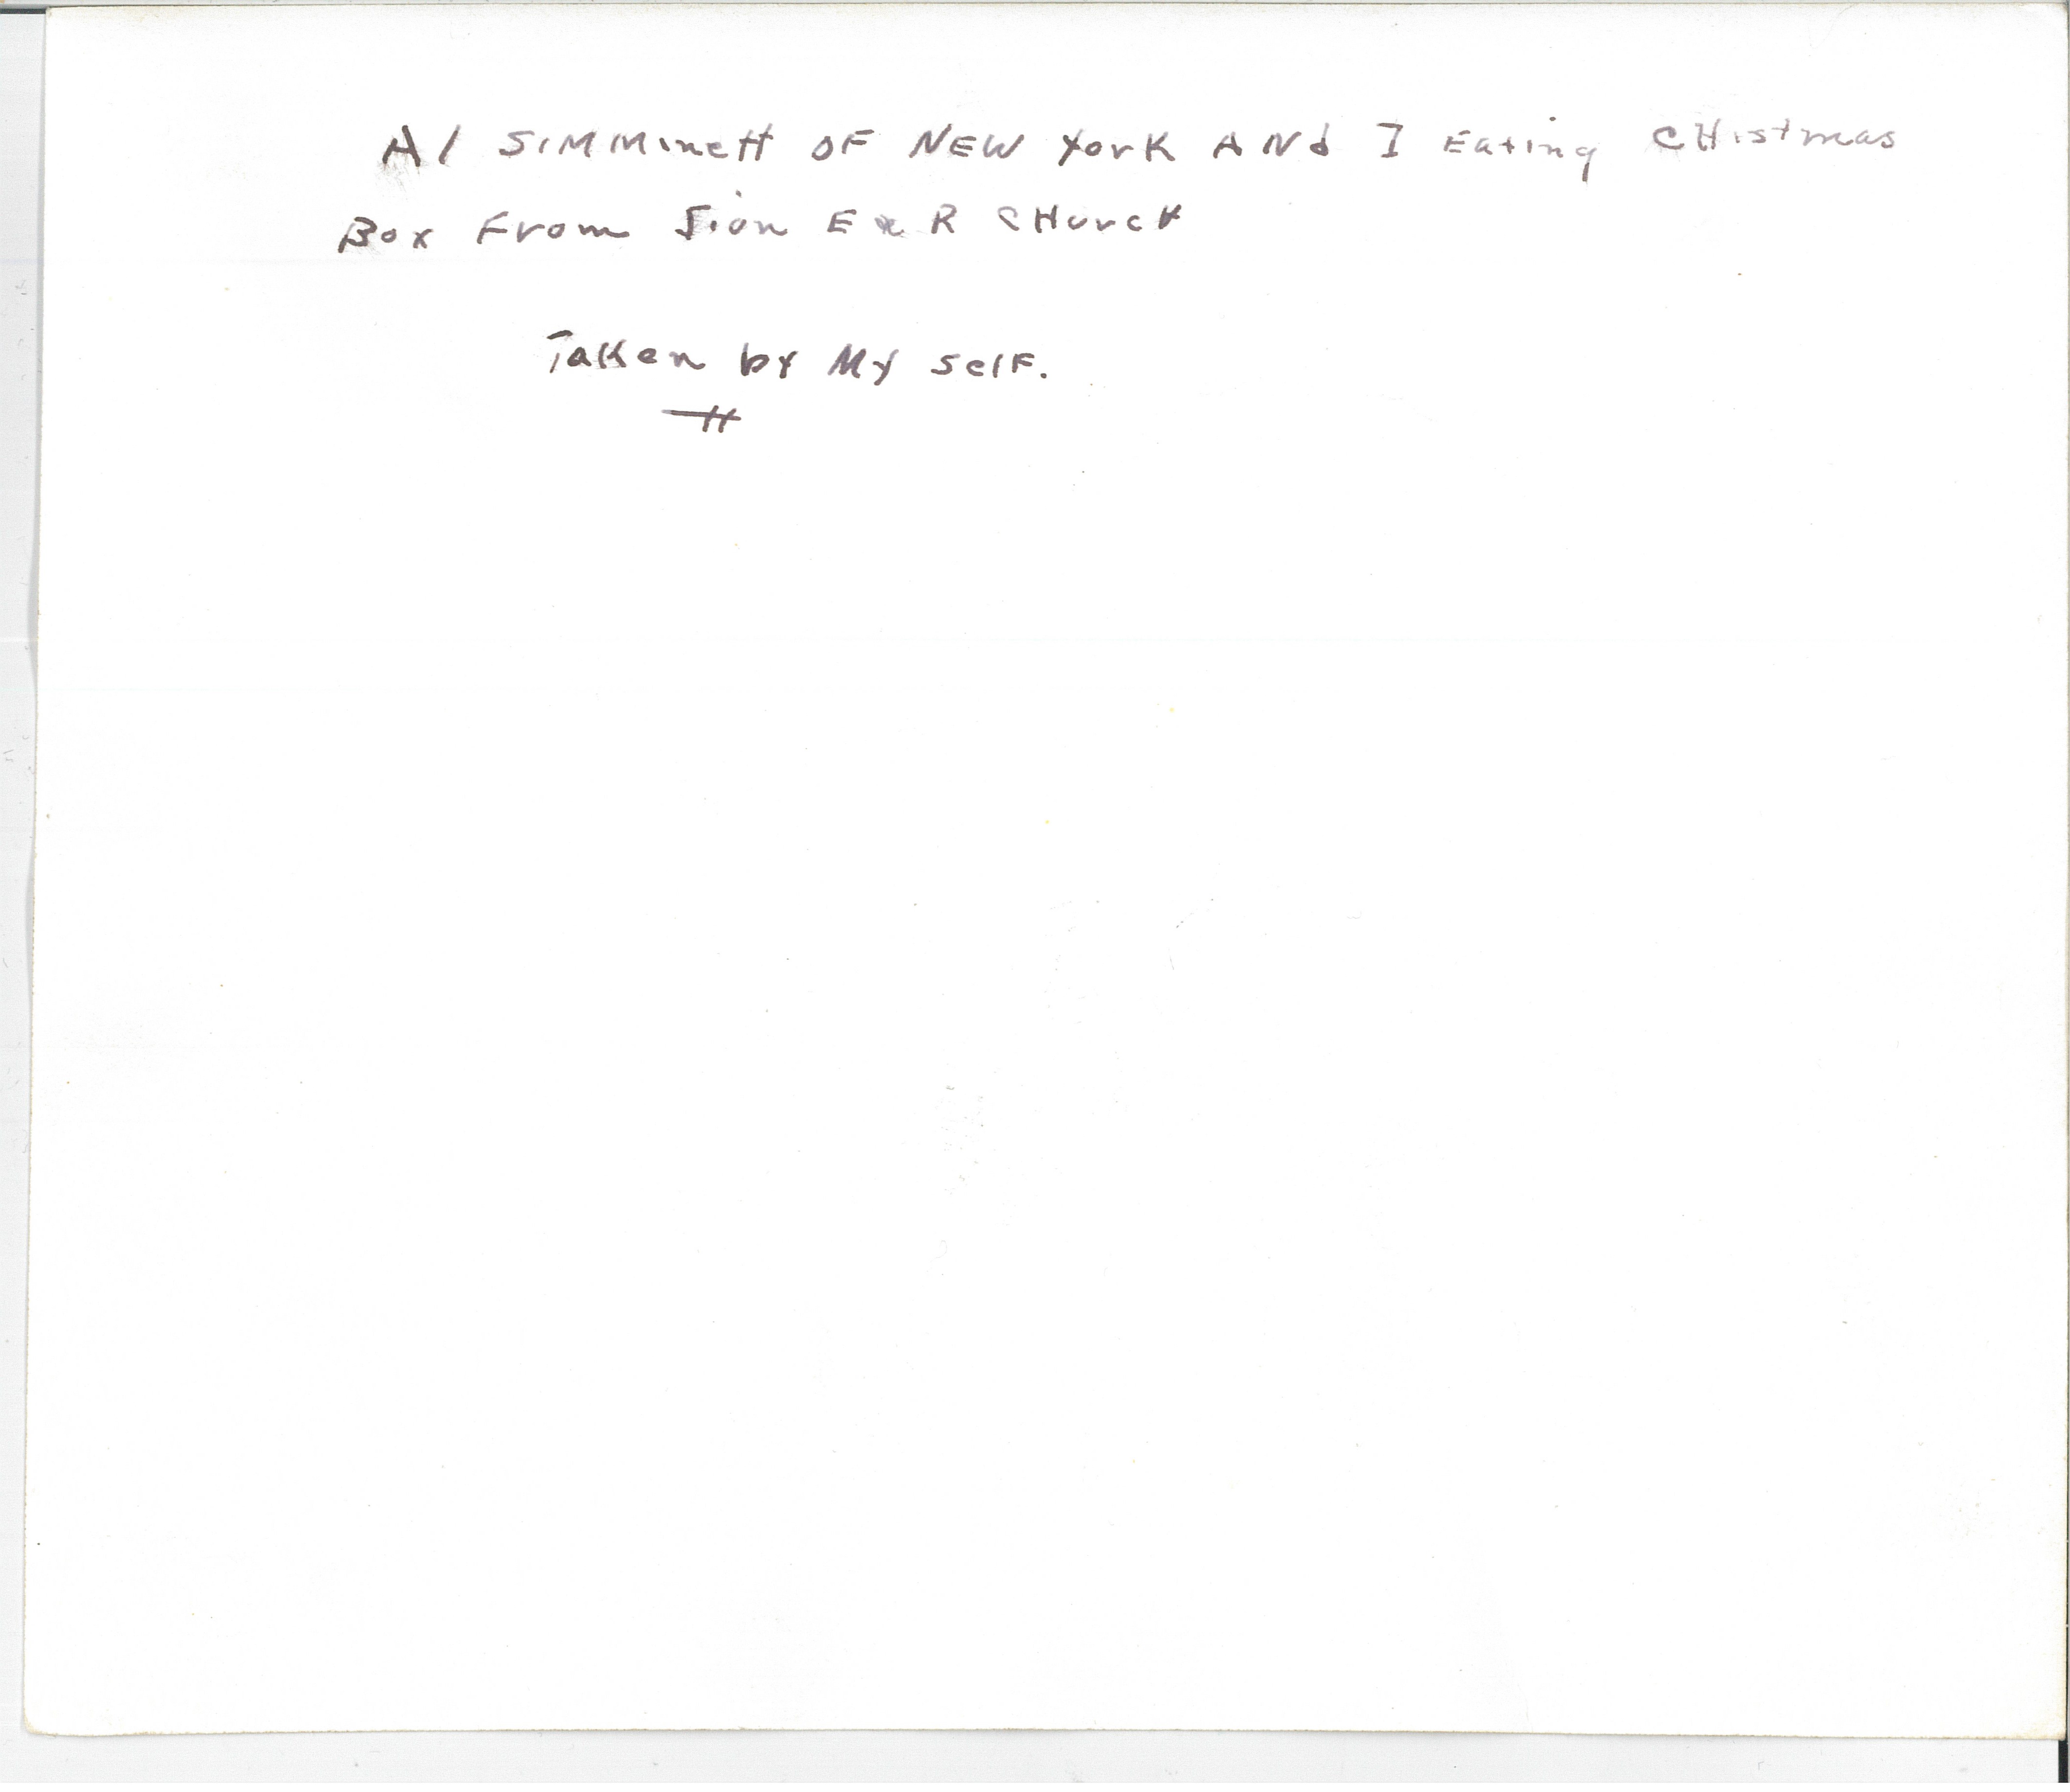 Al SiMMinett OF NEW York ANd I Eating CHistmas
Box From Zion E & R CHurch
Taken by My self.